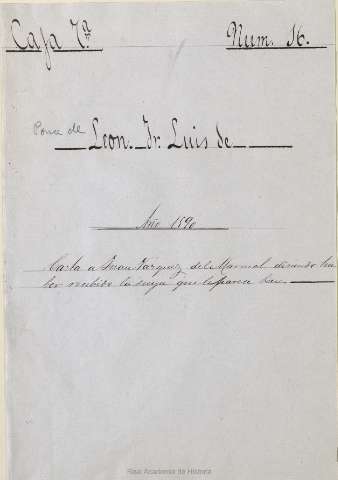 Caja 7ª Num. 16.
Ponce de Leon. Fr. Luis de
Año 1590
Carta a Juan Vazquez del Marmol diciendo ha
ber recibido la suya que le parece bien.
Real Academia de Historia